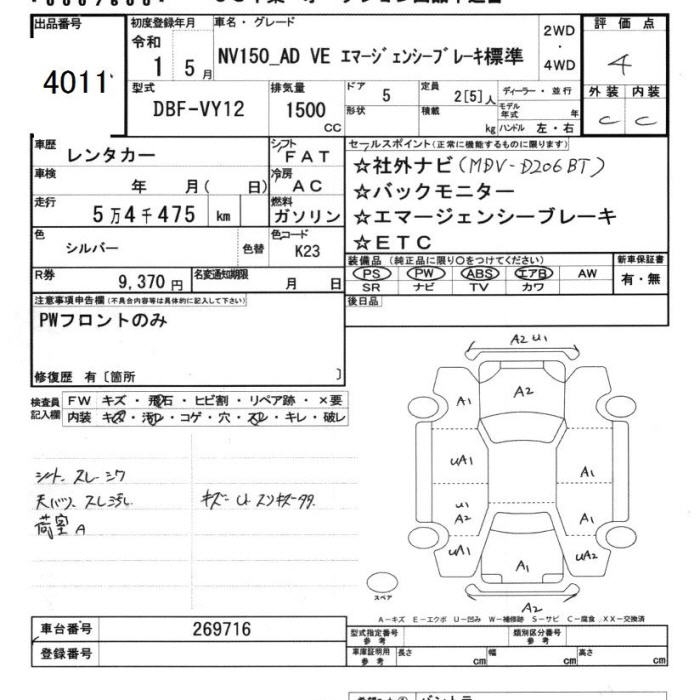 出品番号
4011
初度登録年月
令和
1 5月
車名・グレード
NV150_AD VE エマージェンシーブレーキ標準
2WD
・
4WD
評価点
4
外装 内装
C C
型式
DBF-VY12
排気量
1500
CC
ドア
5
形状
定員
2[5]人
積載
kg
ディーラー・並行
モデル年式 年
ハンドル 左・右
車歴
レンタカー
シフト
FAT
車検
年 月( 日)
冷房
AC
走行
5万4千475 km
燃料
ガソリン
色
シルバー
色替
色コード
K23
R券
9,370円
名変通知期限
月 日
セールスポイント(正常に機能するものに限ります)
☆社外ナビ(MDV-D206BT)
☆バックモニター
☆エマージェンシーブレーキ
☆ETC
装備品(純正品に限り○をつけてください)
PS PW ABS エアB AW
SR ナビ TV カワ
新車保証書
有・無
後日品
注意事項申告欄(不具合内容等は具体的に記入して下さい)
PWフロントのみ
修復歴 有〔箇所 〕
検査員
記入欄
FW キズ・飛石・ヒビ割・リペア跡・×要
内装 キズ・汚れ・コゲ・穴・スレ・キレ・破レ
シート、スレ・シワ
荷室A
A2 U1
A1
A2
UA1
A1
U1
A2
A1
UA1
A1
UA2
A2
スペア
A-キズ E-エクボ U-凹み W-補修跡 S-サビ C-腐食 XX-交換済
車台番号
269716
登録番号
型式指定番号
参考
類別区分番号
参考
車庫証明用
参考
長さ cm 幅 cm 高さ cm